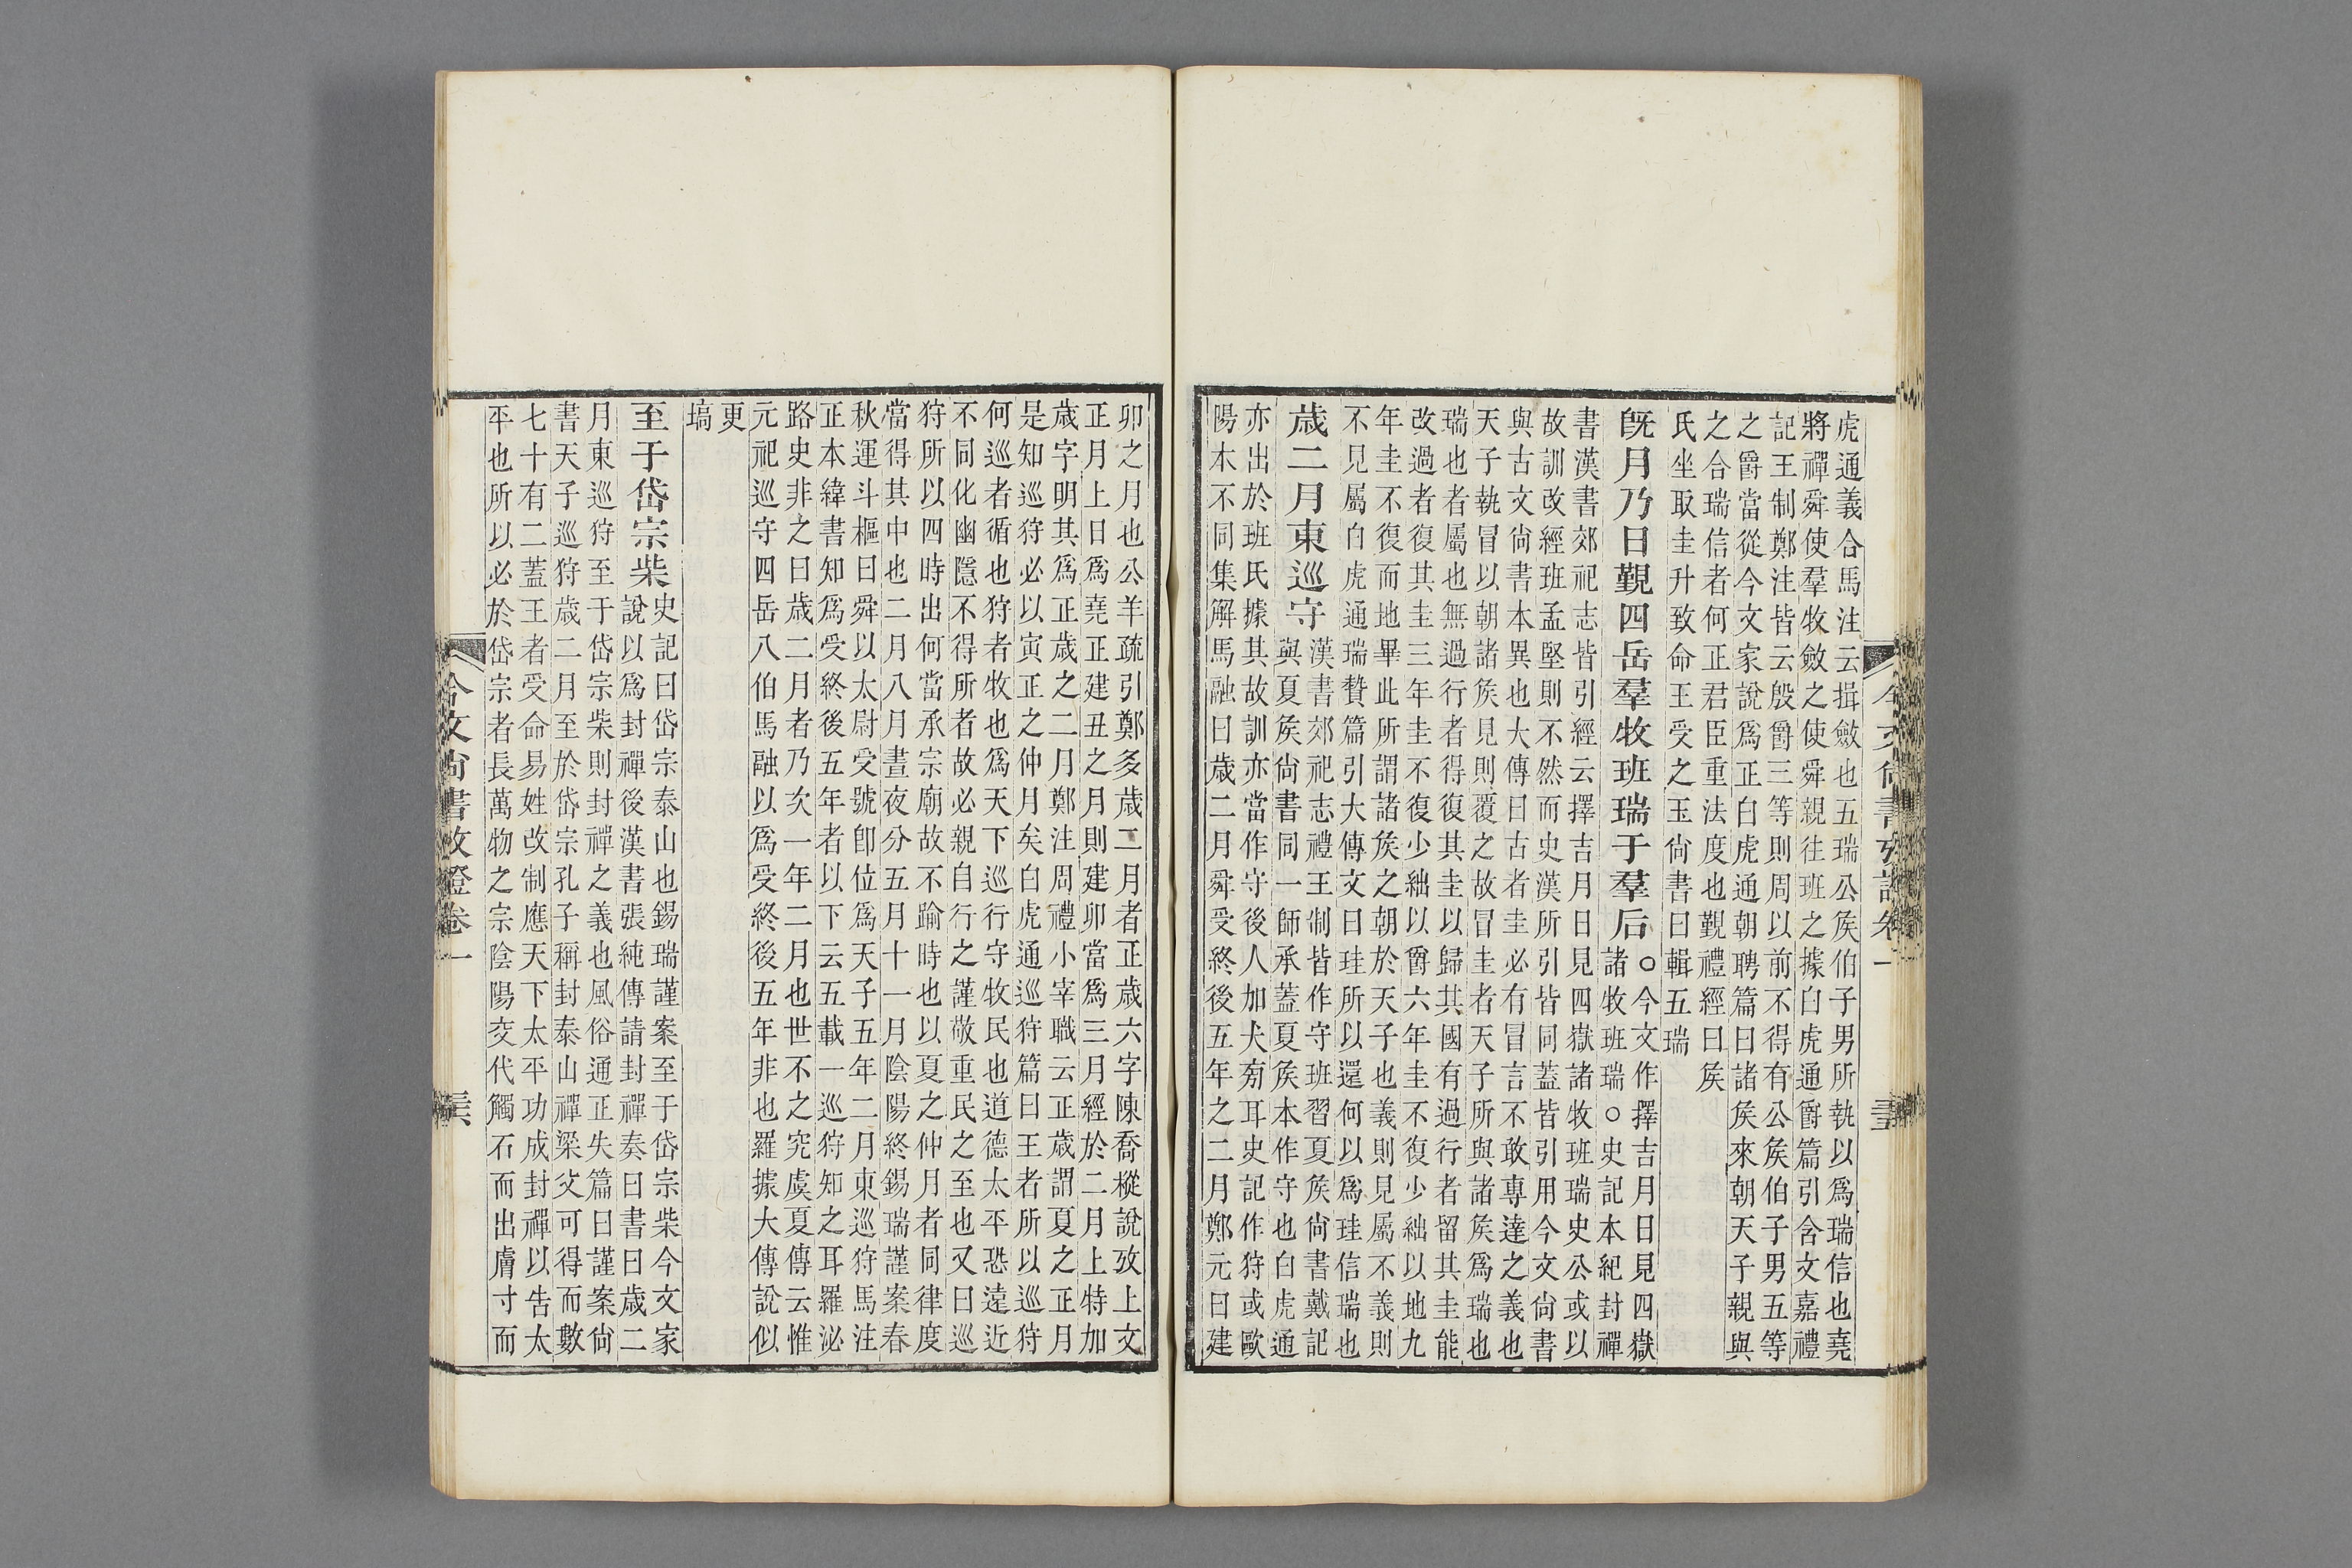 虎通義合馬注云揖斂也五瑞公矦伯子男所執以爲瑞信也堯
將禪舜使羣牧斂之使舜親往班之據白虎通爵篇引含文嘉禮
記王制鄭注皆云殷爵三等則周以前不得有公矦伯子男五等
之爵當從今文家說爲正白虎通朝聘篇曰諸矦來朝天子親與
之合瑞信者何正君臣重法度也覲禮經曰矦
氏坐取圭升致命王受之玉尙書曰輯五瑞
旣月乃日覲四岳羣牧班瑞于羣后
○今文作擇吉月日見四嶽
諸牧班瑞○史記本紀封禪
書漢書郊祀志皆引經云擇吉月日見四嶽諸牧班瑞史公或以
故訓改經班孟堅則不然而史漢所引皆同蓋皆引用今文尙書
與古文尙書本異也大傳曰古者圭必有冒言不敢專達之義也
天子執冒以朝諸矦見則覆之故冒圭者天子所與諸矦爲瑞也
瑞也者屬也無過行者得復其圭以歸其國有過行者留其圭能
改過者復其圭三年圭不復少絀以爵六年圭不復少絀以地九
年圭不復而地畢此所謂諸矦之朝於天子也義則見屬不義則
不見屬白虎通瑞贄篇引大傳文曰珪所以還何以爲珪信瑞也
歲二月東巡守
漢書郊祀志禮王制皆作守班習夏矦尙書戴記
與夏矦尙書同一師承蓋夏矦本作守也白虎通
亦出於班氏據其故訓亦當作守後人加犬㫄耳史記作狩或歐
陽本不同集解馬融曰歲二月舜受終後五年之二月鄭元曰建
今文尙書攷證卷一
卯之月也公羊疏引鄭多歲二月者正歲六字陳喬樅說攷上文
正月上日爲堯正建丑之月則建卯當爲三月經於二月上特加
歲字明其爲正歲之二月鄭注周禮小宰職云正歲謂夏之正月
是知巡狩必以寅正之仲月矣白虎通巡狩篇曰王者所以巡狩
何巡者循也狩者牧也爲天下巡行守牧民也道德太平恐遠近
不同化幽隱不得所者故必親自行之謹敬重民之至也又曰巡
狩所以四時出何當承宗廟故不踰時也以夏之仲月者同律度
當得其中也二月八月晝夜分五月十一月陰陽終錫瑞謹案春
秋運斗樞曰舜以太尉受號卽位爲天子五年二月東巡狩馬注
正本緯書知爲受終後五年者以下云五載一巡狩知之耳羅泌
路史非之曰歲二月者乃次一年二月也世不之究虞夏傳云惟
元祀巡守四岳八伯馬融以爲受終後五年非也羅據大傳說似
更
塙
至于岱宗柴
史記曰岱宗泰山也錫瑞謹案至于岱宗柴今文家
說以爲封禪後漢書張純傳請封禪奏曰書曰歲二
月東巡狩至于岱宗柴則封禪之義也風俗通正失篇曰謹案尙
書天子巡狩歲二月至於岱宗孔子稱封泰山禪梁父可得而數
七十有二蓋王者受命易姓改制應天下太平功成封禪以告太
平也所以必於岱宗者長萬物之宗陰陽交代觸石而出膚寸而
今文尙書攷證卷一